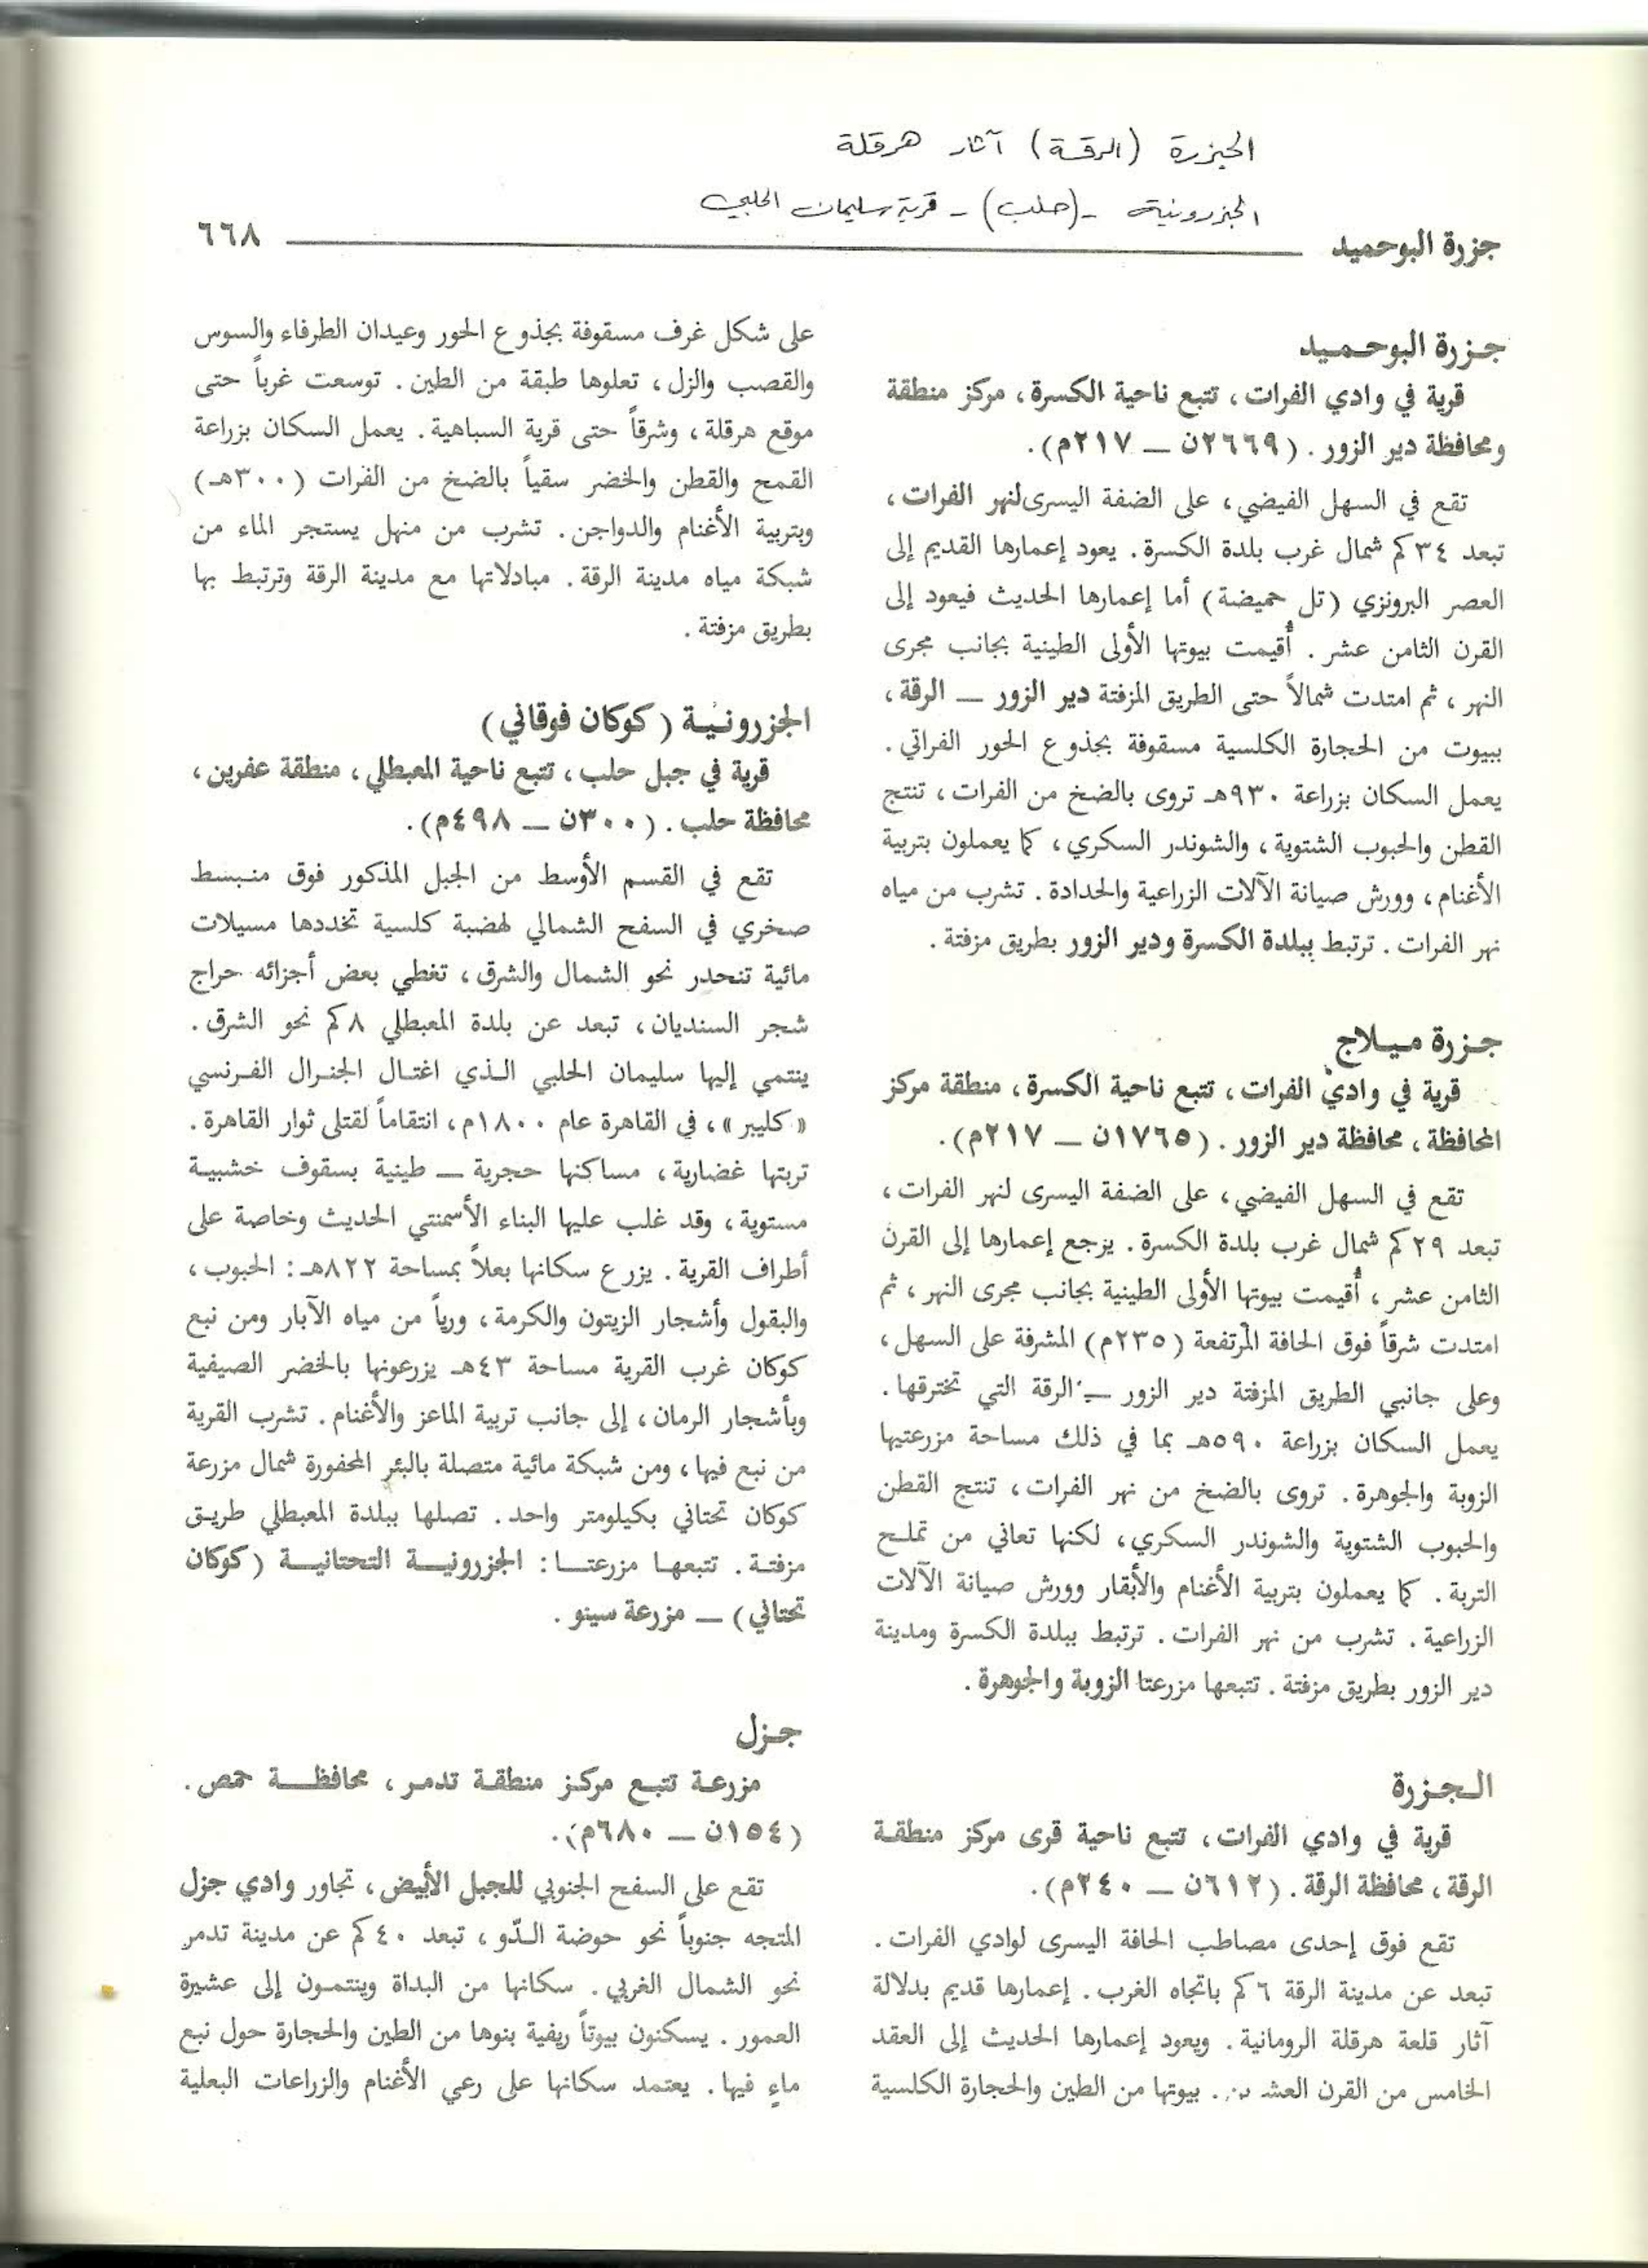 الجزرة (الرقة) آثار هرقلة
الجزرونية - (حلب) - قرية سليمان الحلبي
جزرة البوحميد ٦٦٨
جـزرة البوحـمـيـد
قرية في وادي الفرات ، تتبع ناحية الكسرة ، مركز منطقة
ومحافظة دير الزور . (٢٦٦٩ن — ٢١٧م) .
تقع في السهل الفيضي ، على الضفة اليسرى لنهر الفرات ،
تبعد ٣٤ كم شمال غرب بلدة الكسرة . يعود إعمارها القديم إلى
العصر البرونزي (تل حميضة) أما إعمارها الحديث فيعود إلى
القرن الثامن عشر . أُقيمت بيوتها الأولى الطينية بجانب مجرى
النهر ، ثم امتدت شمالاً حتى الطريق المزفتة دير الزور — الرقة ،
ببيوت من الحجارة الكلسية مسقوفة بجذوع الحور الفراتي .
يعمل السكان بزراعة ٩٣٠هـ تروى بالضخ من الفرات ، تنتج
القطن والحبوب الشتوية ، والشوندر السكري ، كما يعملون بتربية
الأغنام ، وورش صيانة الآلات الزراعية والحدادة . تشرب من مياه
نهر الفرات . ترتبط ببلدة الكسرة ودير الزور بطريق مزفتة .
جـزرة ميـلاج
قرية في وادي الفرات ، تتبع ناحية الكسرة ، منطقة مركز
المحافظة ، محافظة دير الزور . (١٧٦٥ن — ٢١٧م) .
تقع في السهل الفيضي ، على الضفة اليسرى لنهر الفرات ،
تبعد ٢٩ كم شمال غرب بلدة الكسرة . يرجع إعمارها إلى القرن
الثامن عشر ، أُقيمت بيوتها الأولى الطينية بجانب مجرى النهر ، ثم
امتدت شرقاً فوق الحافة المرتفعة (٢٣٥م) المشرفة على السهل ،
وعلى جانبي الطريق المزفتة دير الزور — الرقة التي تخترقها .
يعمل السكان بزراعة ٥٩٠هـ بما في ذلك مساحة مزرعتيها
الزوبة والجوهرة . تروى بالضخ من نهر الفرات ، تنتج القطن
والحبوب الشتوية والشوندر السكري ، لكنها تعاني من تملح
التربة . كما يعملون بتربية الأغنام والأبقار وورش صيانة الآلات
الزراعية . تشرب من نهر الفرات . ترتبط ببلدة الكسرة ومدينة
دير الزور بطريق مزفتة . تتبعها مزرعتا الزوبة والجوهرة .
الـجـزرة
قرية في وادي الفرات ، تتبع ناحية قرى مركز منطقة
الرقة ، محافظة الرقة . (٦١٢ن — ٢٤٠م) .
تقع فوق إحدى مصاطب الحافة اليسرى لوادي الفرات .
تبعد عن مدينة الرقة ٦ كم باتجاه الغرب . إعمارها قديم بدلالة
آثار قلعة هرقلة الرومانية . ويعود إعمارها الحديث إلى العقد
الخامس من القرن العشرين . بيوتها من الطين والحجارة الكلسية
على شكل غرف مسقوفة بجذوع الحور وعيدان الطرفاء والسوس
والقصب والزل ، تعلوها طبقة من الطين . توسعت غرباً حتى
موقع هرقلة ، وشرقاً حتى قرية السباهية . يعمل السكان بزراعة
القمح والقطن والخضر سقياً بالضخ من الفرات (٣٠٠هـ)
وبتربية الأغنام والدواجن . تشرب من منهل يستجر الماء من
شبكة مياه مدينة الرقة . مبادلاتها مع مدينة الرقة وترتبط بها
بطريق مزفتة .
الجزرونـيـة (كوكان فوقاني)
قرية في جبل حلب ، تتبع ناحية المعبطلي ، منطقة عفرين ،
محافظة حلب . (٣٠٠ن — ٤٩٨م) .
تقع في القسم الأوسط من الجبل المذكور فوق منبسط
صخري في السفح الشمالي لهضبة كلسية تخددها مسيلات
مائية تنحدر نحو الشمال والشرق ، تغطي بعض أجزائه حراج
شجر السنديان ، تبعد عن بلدة المعبطلي ٨ كم نحو الشرق .
ينتمي إليها سليمان الحلبي الذي اغتال الجنرال الفرنسي
«كليبر» ، في القاهرة عام ١٨٠٠م ، انتقاماً لقتلى ثوار القاهرة .
تربتها غضارية ، مساكنها حجرية — طينية بسقوف خشبية
مستوية ، وقد غلب عليها البناء الأسمنتي الحديث وخاصة على
أطراف القرية . يزرع سكانها بعلاً بمساحة ٨٢٢هـ : الحبوب ،
والبقول وأشجار الزيتون والكرمة ، ورياً من مياه الآبار ومن نبع
كوكان غرب القرية مساحة ٤٣هـ يزرعونها بالخضر الصيفية
وبأشجار الرمان ، إلى جانب تربية الماعز والأغنام . تشرب القرية
من نبع فيها ، ومن شبكة مائية متصلة بالبئر المحفورة شمال مزرعة
كوكان تحتاني بكيلومتر واحد . تصلها ببلدة المعبطلي طريق
مزفتة . تتبعها مزرعتـا : الجزرونيـة التحتانيـة (كوكان
تحتاني) — مزرعة سينو .
جـزل
مزرعة تتبع مركز منطقة تدمر ، محافظة حمص .
(١٥٤ن — ٦٨٠م) .
تقع على السفح الجنوبي للجبل الأبيض ، تجاور وادي جزل
المتجه جنوباً نحو حوضة الـدّو ، تبعد ٤٠ كم عن مدينة تدمر
نحو الشمال الغربي . سكانها من البداة وينتمون إلى عشيرة
العمور . يسكنون بيوتاً ريفية بنوها من الطين والحجارة حول نبع
ماءٍ فيها . يعتمد سكانها على رعي الأغنام والزراعات البعلية